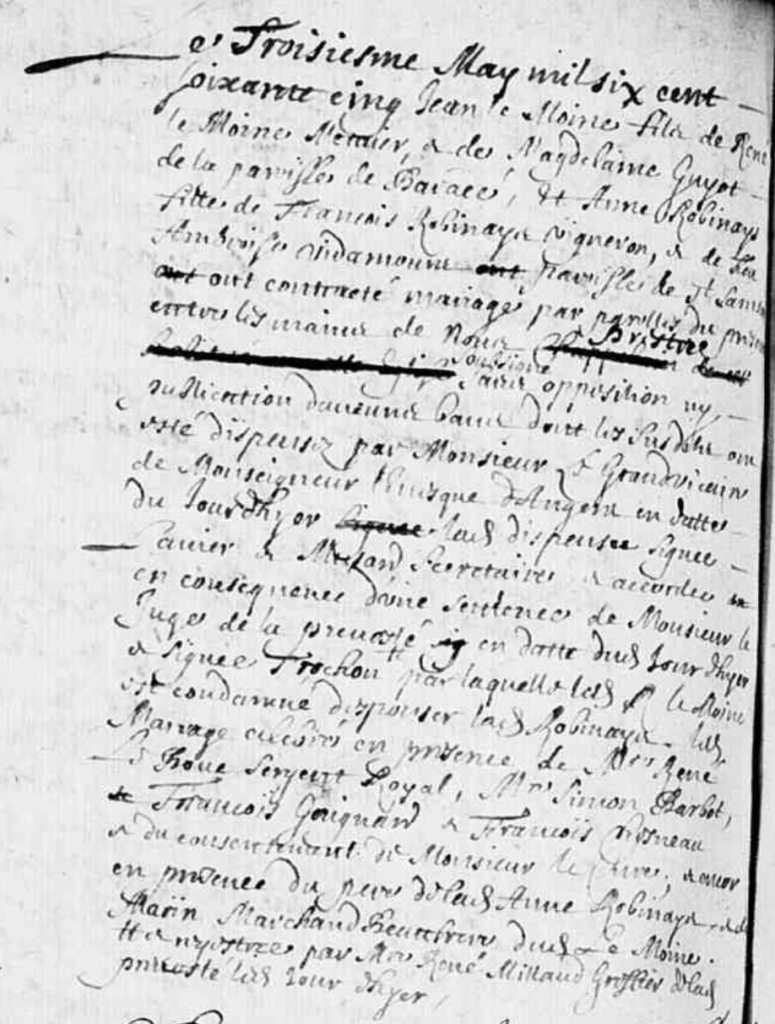 e Troisiesme May mil six cent
soixante cinq Jean le Moine filz de René
le Moine Mettaier, & de Magdelaine Guyot
de la parroisse de Baracé, et Anne Robinaye
fille de François Robinaye vigneron, & de
Ambroise Vidamour parroisse de St Samson
ont contracté mariage par parolles du present
entre les mains de Nous Prestre
soussigné sans opposition ny
publication d'aucuns bans dont les susdits ont
esté dispensez par Monsieur le Grand vicaire
de Monseigneur l'Evesque d'Angers en datte
du Jour d'hyer lad dispense signee
& Secretaire, & accordee
en consequence d'une sentence de Monsieur le
Juge de la prevosté en datte dud Jour d'hyer
& signée Trochon par laquelle led le Moine
est condamné d'espouser lad Robinaye. led
Mariage celebré en presence de Mre René
Sergent Royal, Mre Simon Barbot,
François Goignard & François
& du consentement de Monsieur le Curé, & encor
en presence du pere de lad Anne Robinaye, & de
Marin Marchand dud Le Moine.
par Mre René Millaud Greffier de lad
prevosté led Jour d'hyer,